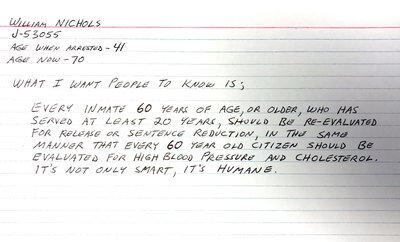 WILLIAM NICHOLS
J-53055
AGE WHEN ARRESTED - 41
AGE NOW - 70
WHAT I WANT PEOPLE TO KNOW IS;
EVERY INMATE 60 YEARS OF AGE, OR OLDER, WHO HAS
SERVED AT LEAST 20 YEARS, SHOULD BE RE-EVALUATED
FOR RELEASE OR SENTENCE REDUCTION, IN THE SAME
MANNER THAT EVERY 60 YEAR OLD CITIZEN SHOULD BE
EVALUATED FOR HIGH BLOOD PRESSURE AND CHOLESTEROL.
IT'S NOT ONLY SMART, IT'S HUMANE.